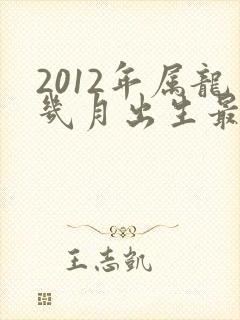 2012年属龍
幾月出生最
王志凱